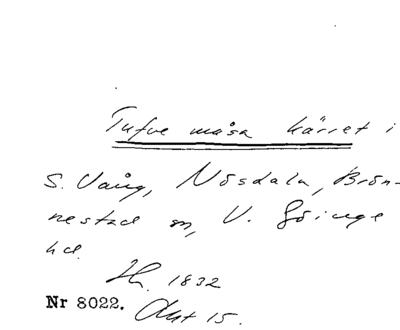 Tufve måsa kärret i
S. Vång, Nösdala, Brön-
nestad sn, V. Göinge
hd.
1832
Nr 8022. Akt 15.